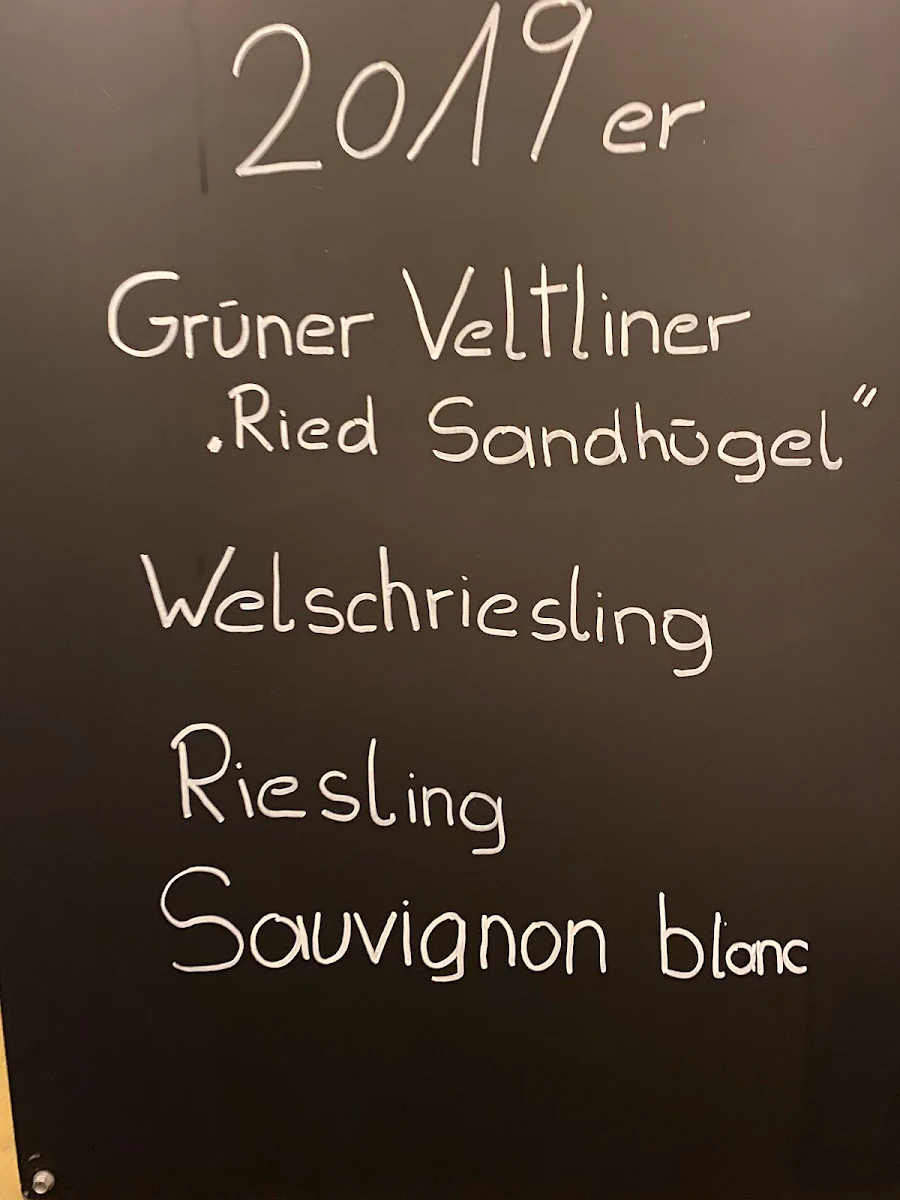 2019er
Grüner Veltliner
„Ried Sandhügel"
Welschriesling
Riesling
Sauvignon blanc